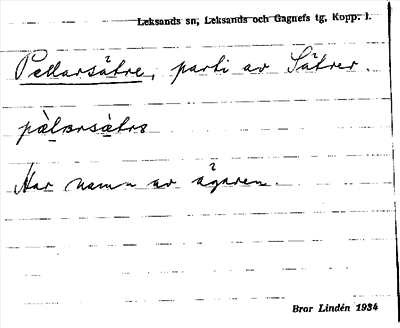 Leksands sn, Leksands och Gagnefs tg, Kopp. l.
Pellarsätre, parti av Sätrer.
pàlarsàtrə
Har namn av ägaren.
Bror Lindén 1934